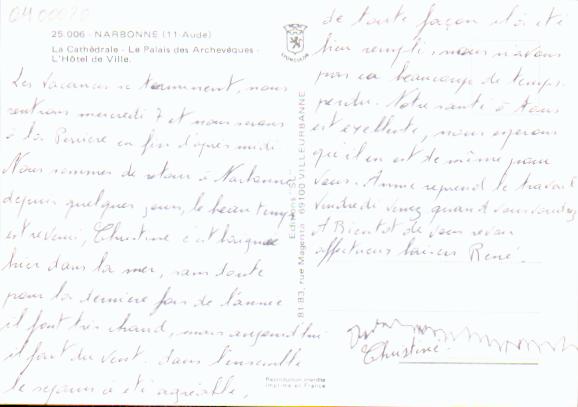 25.006 - NARBONNE (11-Aude)
La Cathédrale - Le Palais des Archevêques -
L'Hôtel de Ville.
Les vacances se terminent, nous
rentrons mercredi 7 et nous serons
à la Perrière en fin d'après midi
Nous sommes de retour à Narbonne
depuis quelques jours, le beau temps
est revenu, Christine s'est baignée
hier dans la mer, sans doute
pour la dernière fois de l'année
il fait très chaud, mais aujourd'hui
il fait du vent. dans l'ensemble
le séjour a été agréable,
Editions "SL"
81-83, rue Magenta - 69100 VILLEURBANNE
de toute façon il a été
bien rempli, nous n'avons
pas eu beaucoup de temps
perdu. Notre santé à tous
est excellente, nous espérons
qu'il en est de même pour
vous. Annie reprend le travail
vendredi venez quand vous voudrez
A Bientôt de vous revoir
affectueux baisers René.
Christine
Reproduction interdite
Imprimé en France